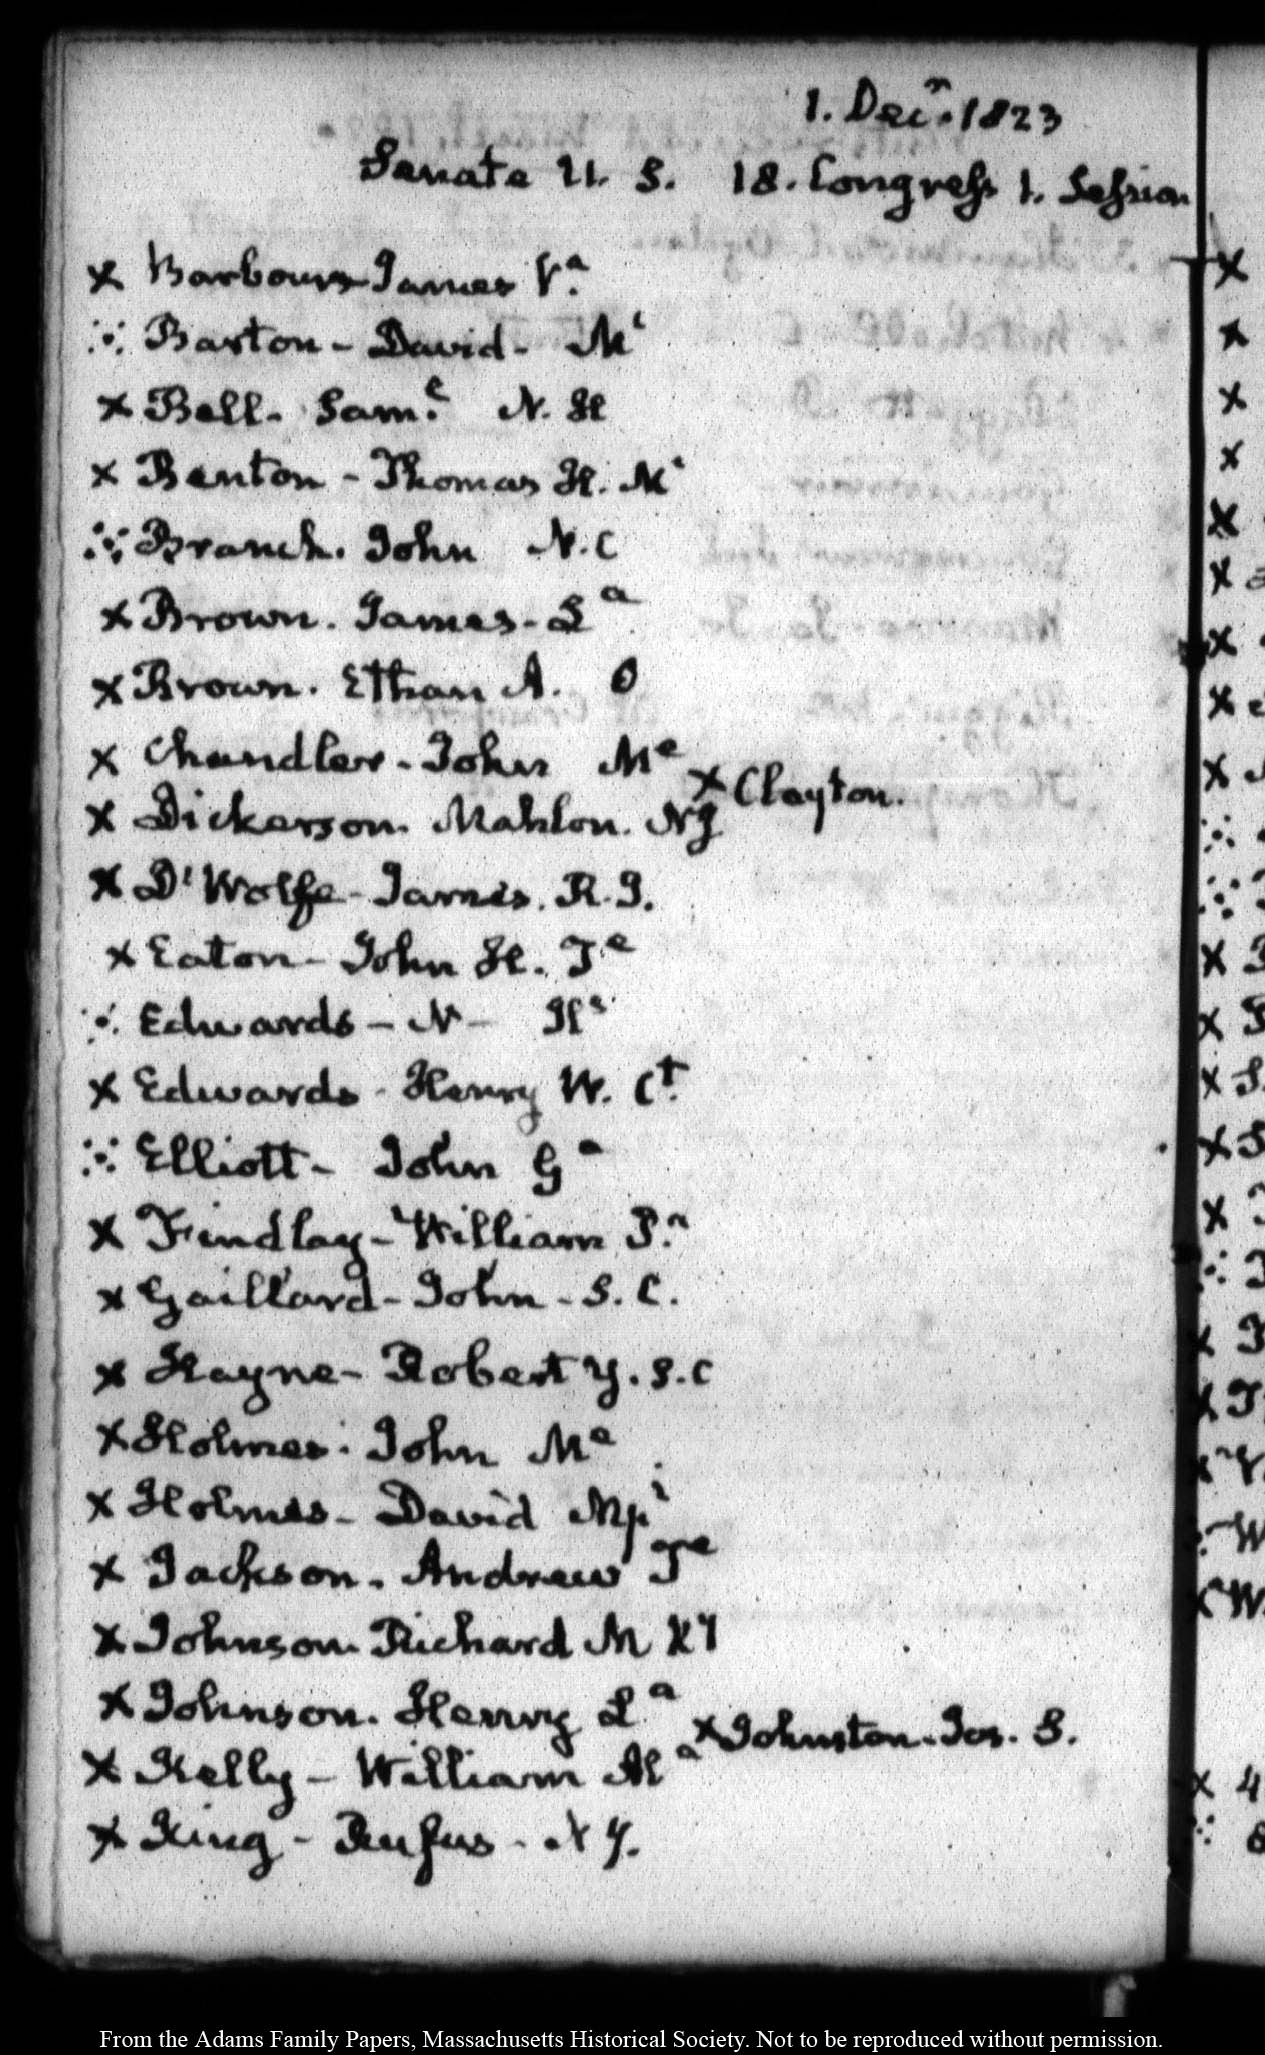 1. Decr. 1823
Senate U. S. 18. Congress 1. Session
x Barbour James Va.
Barton - David - Mi
x Bell. Saml. N. H
x Benton - Thomas H. Mi
Branch. John N. C
x Brown. James - La
x Brown. Ethan A. O
x Chandler - John Me
x Clayton.
x Dickerson. Mahlon. NJ
x D'Wolfe - James. R. I.
x Eaton - John H. Te
Edwards - N - Ils
x Edwards - Henry W. Ct.
Elliott - John Ga
x Findlay - William Pa.
x Gaillard - John - S. C.
x Hayne - Robert Y. S. C
x Holmes. John Me
x Holmes - David Mpi
x Jackson. Andrew Te
x Johnson. Richard M KY
x Johnson. Henry La
x Johnston. Jos. S.
x Kelly - William Al a
x King - Rufus - N Y.
x 4
From the Adams Family Papers, Massachusetts Historical Society. Not to be reproduced without permission.